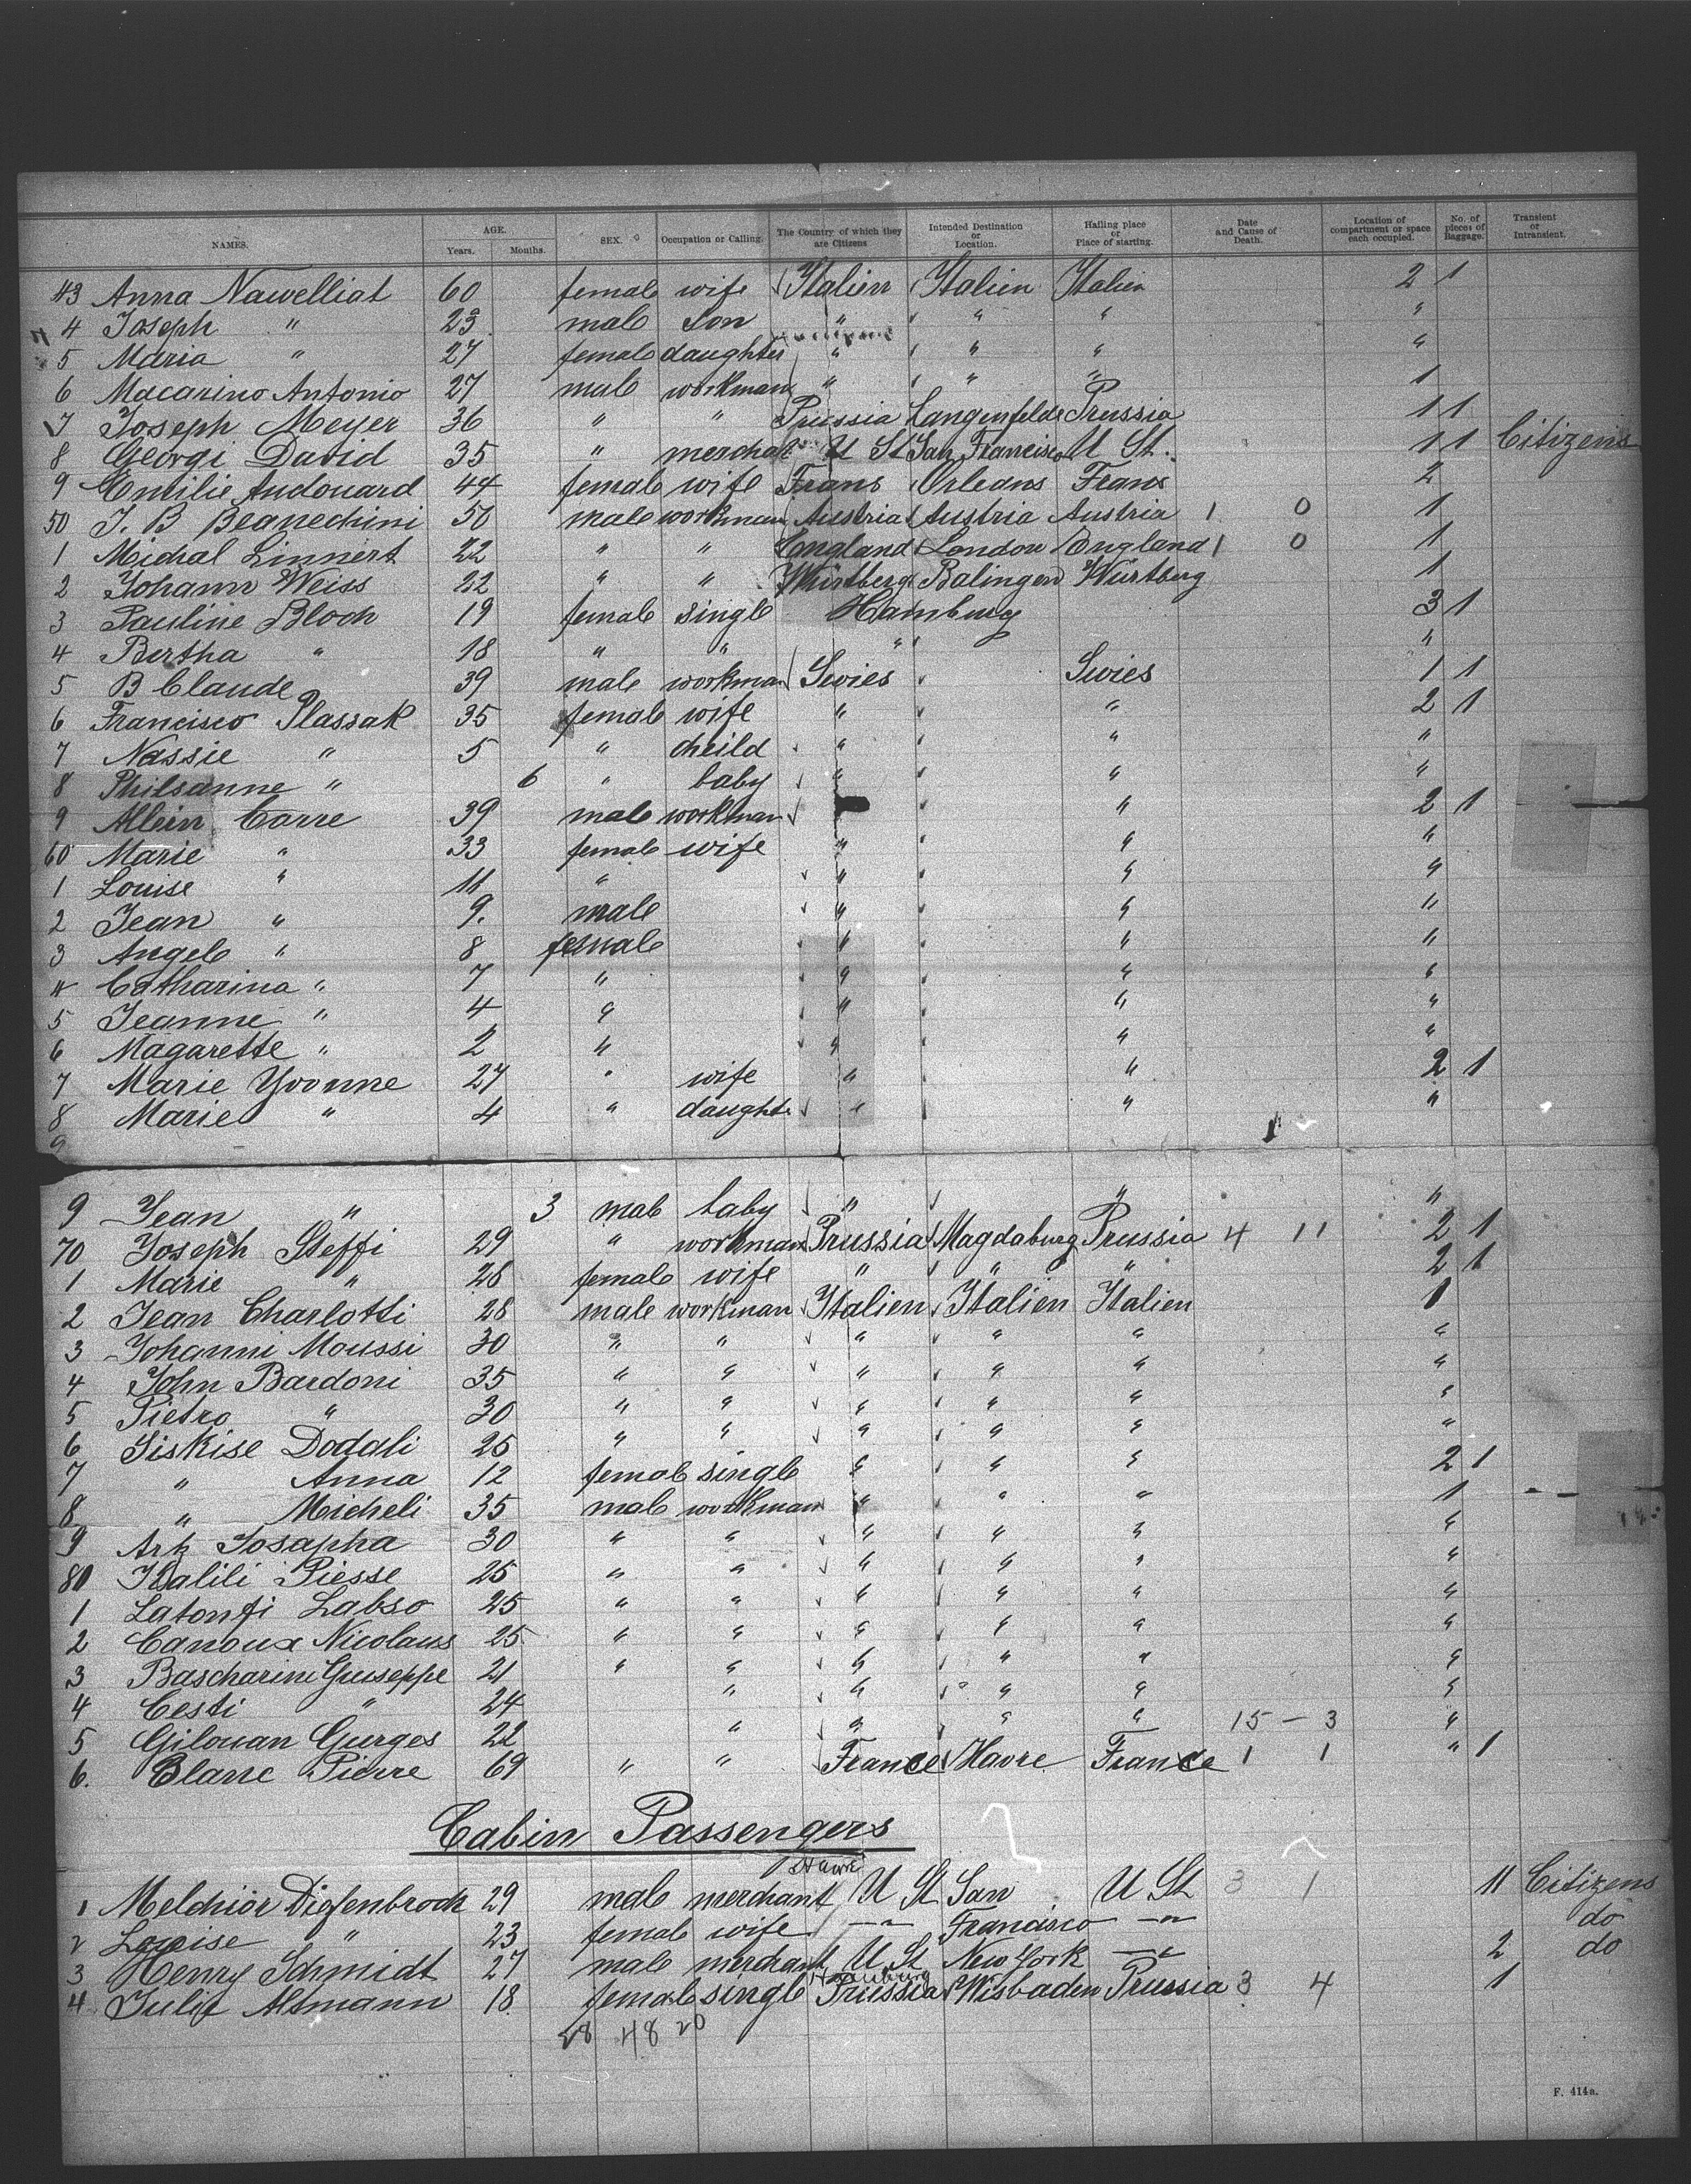 NAMES. AGE. Years. Months. SEX. Occupation or Calling. The Country of which they are Citizens Intended Destination or Location. Hailing place or Place of starting. Date and Cause of Death. Location of compartment or space each occupied. No. of pieces of Baggage. Transient or Intransient.
43 Anna Nawelliat 60 female wife Italien Italien Italien 2 1
4 Joseph " 23 male Son " " " "
5 Maria " 27 female daughter " " " "
6 Macarino Antonio 27 male workman " " " 1
7 Joseph Meyer 36 " " Prussia Langenfelde Prussia 1 1
8 Georgi David 35 " merchat U St San Francisco U St. 1 1 Citizens
9 Emilie Audouard 44 female wife Frans Orleans Frans 2
50 J. B Beanechini 50 male workman Austria Austria Austria 1 0 1
1 Michal Linnert 22 " " England London England 1 0 1
2 Johann Weiss 22 " " Würtberg Balingen Würtberg 1
3 Pauline Bloch 19 female single Hamburg 3 1
4 Bertha " 18 " " " "
5 B Claude 39 male workman Swies Swies 1 1
6 Francisco Plassak 35 female wife " " 2 1
7 Nassie " 5 " cheild " " "
8 Philsanne " 6 " baby " " "
9 Allein Carre 39 male workman " 2 1
60 Marie " 33 female wife " " "
1 Louise " 11 " " " "
2 Jean " 9. male " " "
3 Angele " 8 female " " "
4 Catharina " 7 " " " "
5 Jeanne " 4 " " " "
6 Magarette " 2 " " " "
7 Marie Yvonne 27 " wife " " 2 1
8 Marie " 4 " daughte " " "
9
9 Jean " 3 male baby " " "
70 Joseph Steffi 29 " workman Prussia Magdaburg Prussia 4 11 2 1
1 Marie " 28 female wife " " " 2 1
2 Jean Charlotti 28 male workman Italien Italien Italien 1
3 Johanni Moussi 30 " " " " " "
4 John Bardoni 35 " " " " " "
5 Pietro " 30 " " " " " "
6 Siskise Dodali 25 " " " " " "
7 " Anna 12 female single " " " 2 1
8 " Micheli 35 male workman " " " 1
9 Artz Josapha 30 " " " " " "
80 Italili Piesse 25 " " " " " "
1 Latonfi Labso 25 " " " " " "
2 Canoux Nicolaus 25 " " " " " "
3 Bascharini Guiseppe 21 " " " " " "
4 Cesti " 24 " " " " "
5 Gilouan Gurges 22 " " " " 15 - 3 "
6. Blanc Pierre 69 " " France Havre France 1 1 " 1
Cabin Passengers
1 Melchior Diefenbrock 29 male merchant U St San U St 3 1 11 Citizens
2 Louise " 23 female wife -"- Francisco -"- do
3 Henry Schmidt 27 male merchant U St New York -"- 2 do
Hamburg
4 Julie Altmann 18 female single Prussia Wisbaden Prussia 3 4 1
28 48 20
F. 414a.